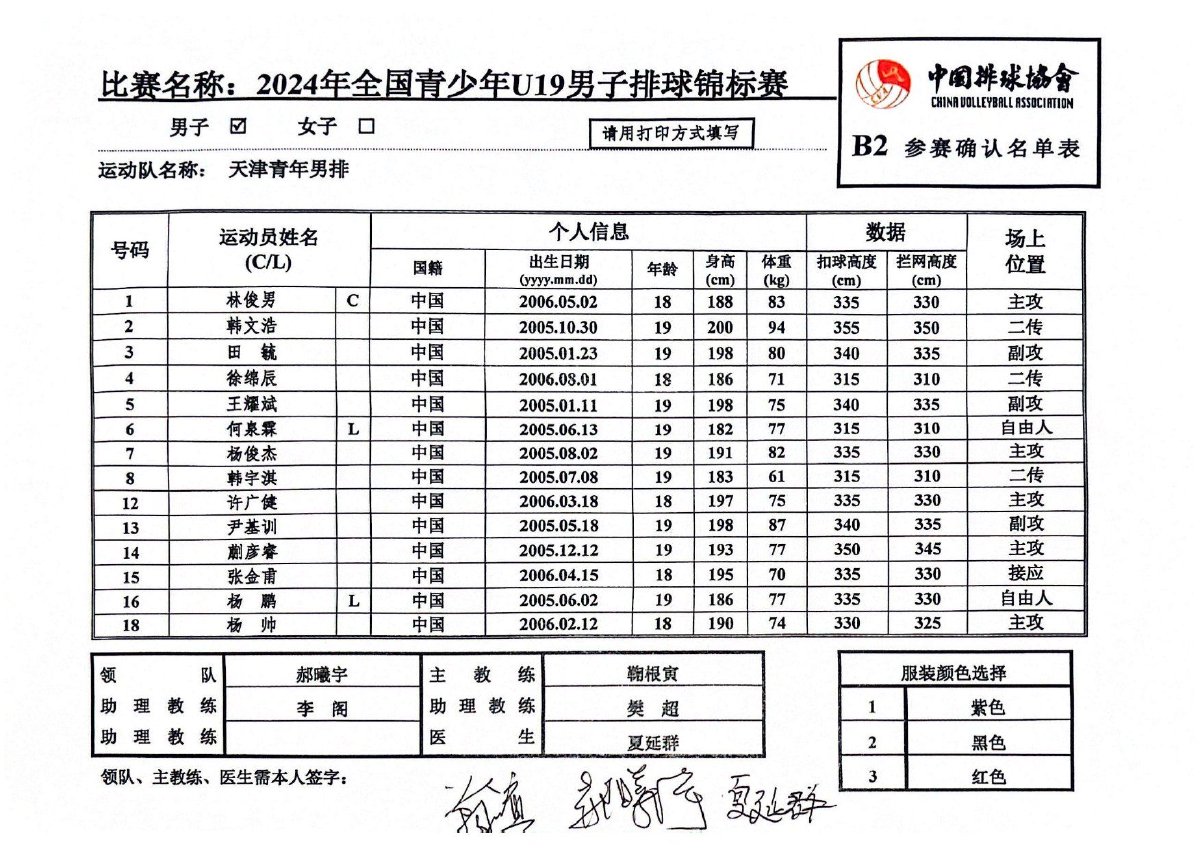 比赛名称：2024年全国青少年U19男子排球锦标赛
男子 ☑ 女子 ☐ 请用打印方式填写
运动队名称： 天津青年男排
中国排球协会
CHINA VOLLEYBALL ASSOCIATION
B2 参赛确认名单表
号码 运动员姓名 (C/L) 个人信息 数据 场上位置
国籍 出生日期 (yyyy.mm.dd) 年龄 身高 (cm) 体重 (kg) 扣球高度 (cm) 拦网高度 (cm)
1 林俊男 C 中国 2006.05.02 18 188 83 335 330 主攻
2 韩文浩 中国 2005.10.30 19 200 94 355 350 二传
3 田 毓 中国 2005.01.23 19 198 80 340 335 副攻
4 徐绵辰 中国 2006.08.01 18 186 71 315 310 二传
5 王耀斌 中国 2005.01.11 19 198 75 340 335 副攻
6 何泉霖 L 中国 2005.06.13 19 182 77 315 310 自由人
7 杨俊杰 中国 2005.08.02 19 191 82 335 330 主攻
8 韩宇淇 中国 2005.07.08 19 183 61 315 310 二传
12 许广健 中国 2006.03.18 18 197 75 335 330 主攻
13 尹基训 中国 2005.05.18 19 198 87 340 335 副攻
14 蒯彦睿 中国 2005.12.12 19 193 77 350 345 主攻
15 张金甫 中国 2006.04.15 18 195 70 335 330 接应
16 杨 鹏 L 中国 2005.06.02 19 186 77 335 330 自由人
18 杨 帅 中国 2006.02.12 18 190 74 330 325 主攻
领队 郝曦宇 主教练 鞠根寅
助理教练 李 阁 助理教练 樊 超
助理教练 医生 夏延群
服装颜色选择
1 紫色
2 黑色
3 红色
领队、主教练、医生需本人签字：
夏延群